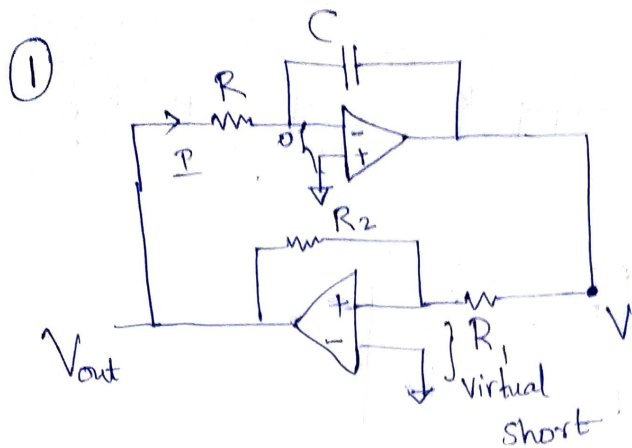 ①
C
R
P
0
-
+
R2
+
-
R1
V
Vout
Virtual
short